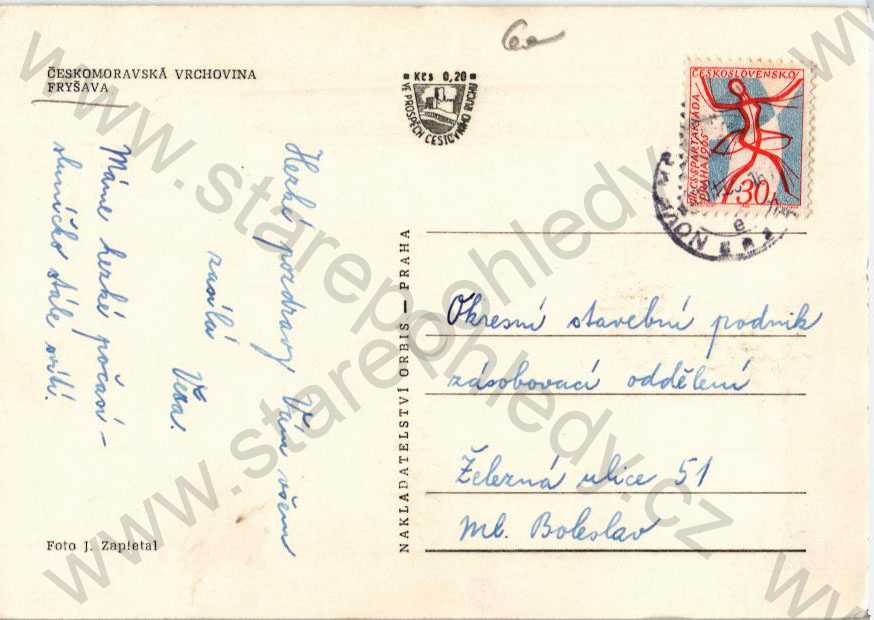 ČESKOMORAVSKÁ VRCHOVINA
FRYŠAVA
Hezké pozdravy Vám všem
zasílá
Věra.
Máme hezké počasí –
sluníčko stále svítí.
Foto J. Zapletal
Kčs 0,20
VE PROSPĚCH CESTOVNÍHO RUCHU
NAKLADATELSTVÍ ORBIS — PRAHA
ČESKOSLOVENSKO
SPARTAKIÁDA
PRAHA 1965
30
NOV
e
Okresní stavební podnik
zásobovací oddělení
Železná ulice 51
Ml. Boleslav
www.starepohledy.cz